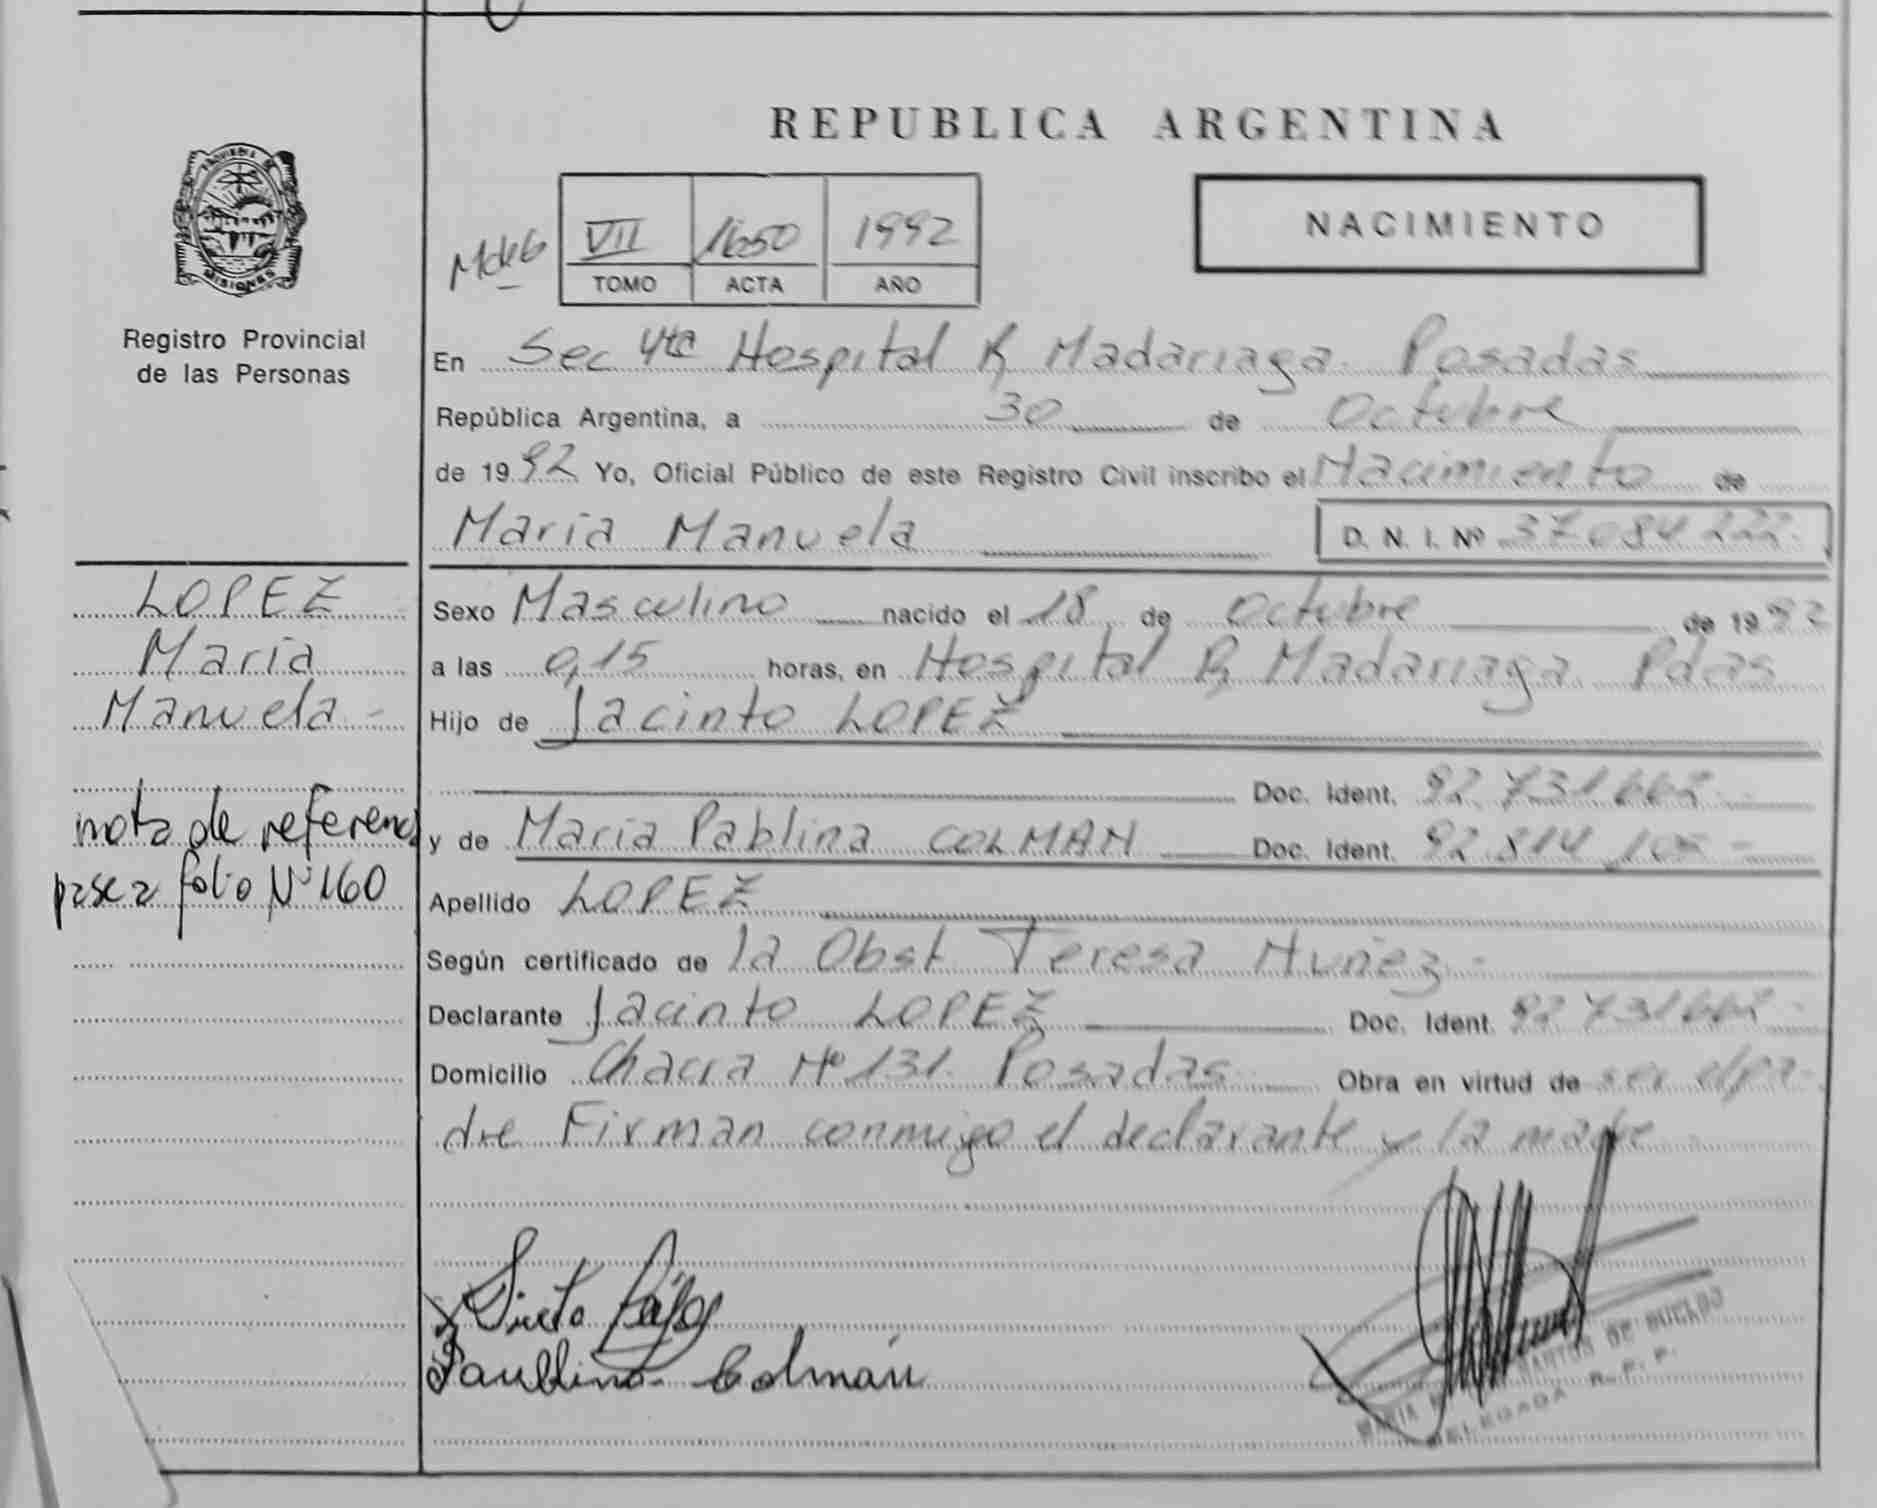 REPUBLICA ARGENTINA
PROVINCIA DE
MISIONES
Registro Provincial
de las Personas
VII 1650 1992
TOMO ACTA AÑO
NACIMIENTO
En Sec 4ta Hospital R Madariaga. Posadas
República Argentina, a 30 de Octubre
de 1992 Yo, Oficial Público de este Registro Civil inscribo el Nacimiento de
Maria Manuela D. N. I. Nº 37084222
LOPEZ
Maria
Manuela -
nota de referenc
pase a folio Nº 160
Sexo Masculino nacido el 18 de Octubre de 1992
a las 0,15 horas, en Hospital R Madariaga Pdas
Hijo de Jacinto LOPEZ
Doc. Ident. 92 731662 -
y de Maria Pablina COLMAN Doc. Ident. 92 814 105 -
Apellido LOPEZ
Según certificado de la Obst Teresa Nuñez -
Declarante Jacinto LOPEZ Doc. Ident. 92 731662 -
Domicilio Chacra Nº 131. Posadas Obra en virtud de ser el pa-
dre Firman conmigo el declarante y la madre
Colmán
MARIA SANTOS DE BUENO
DELEGADA R. P. P.